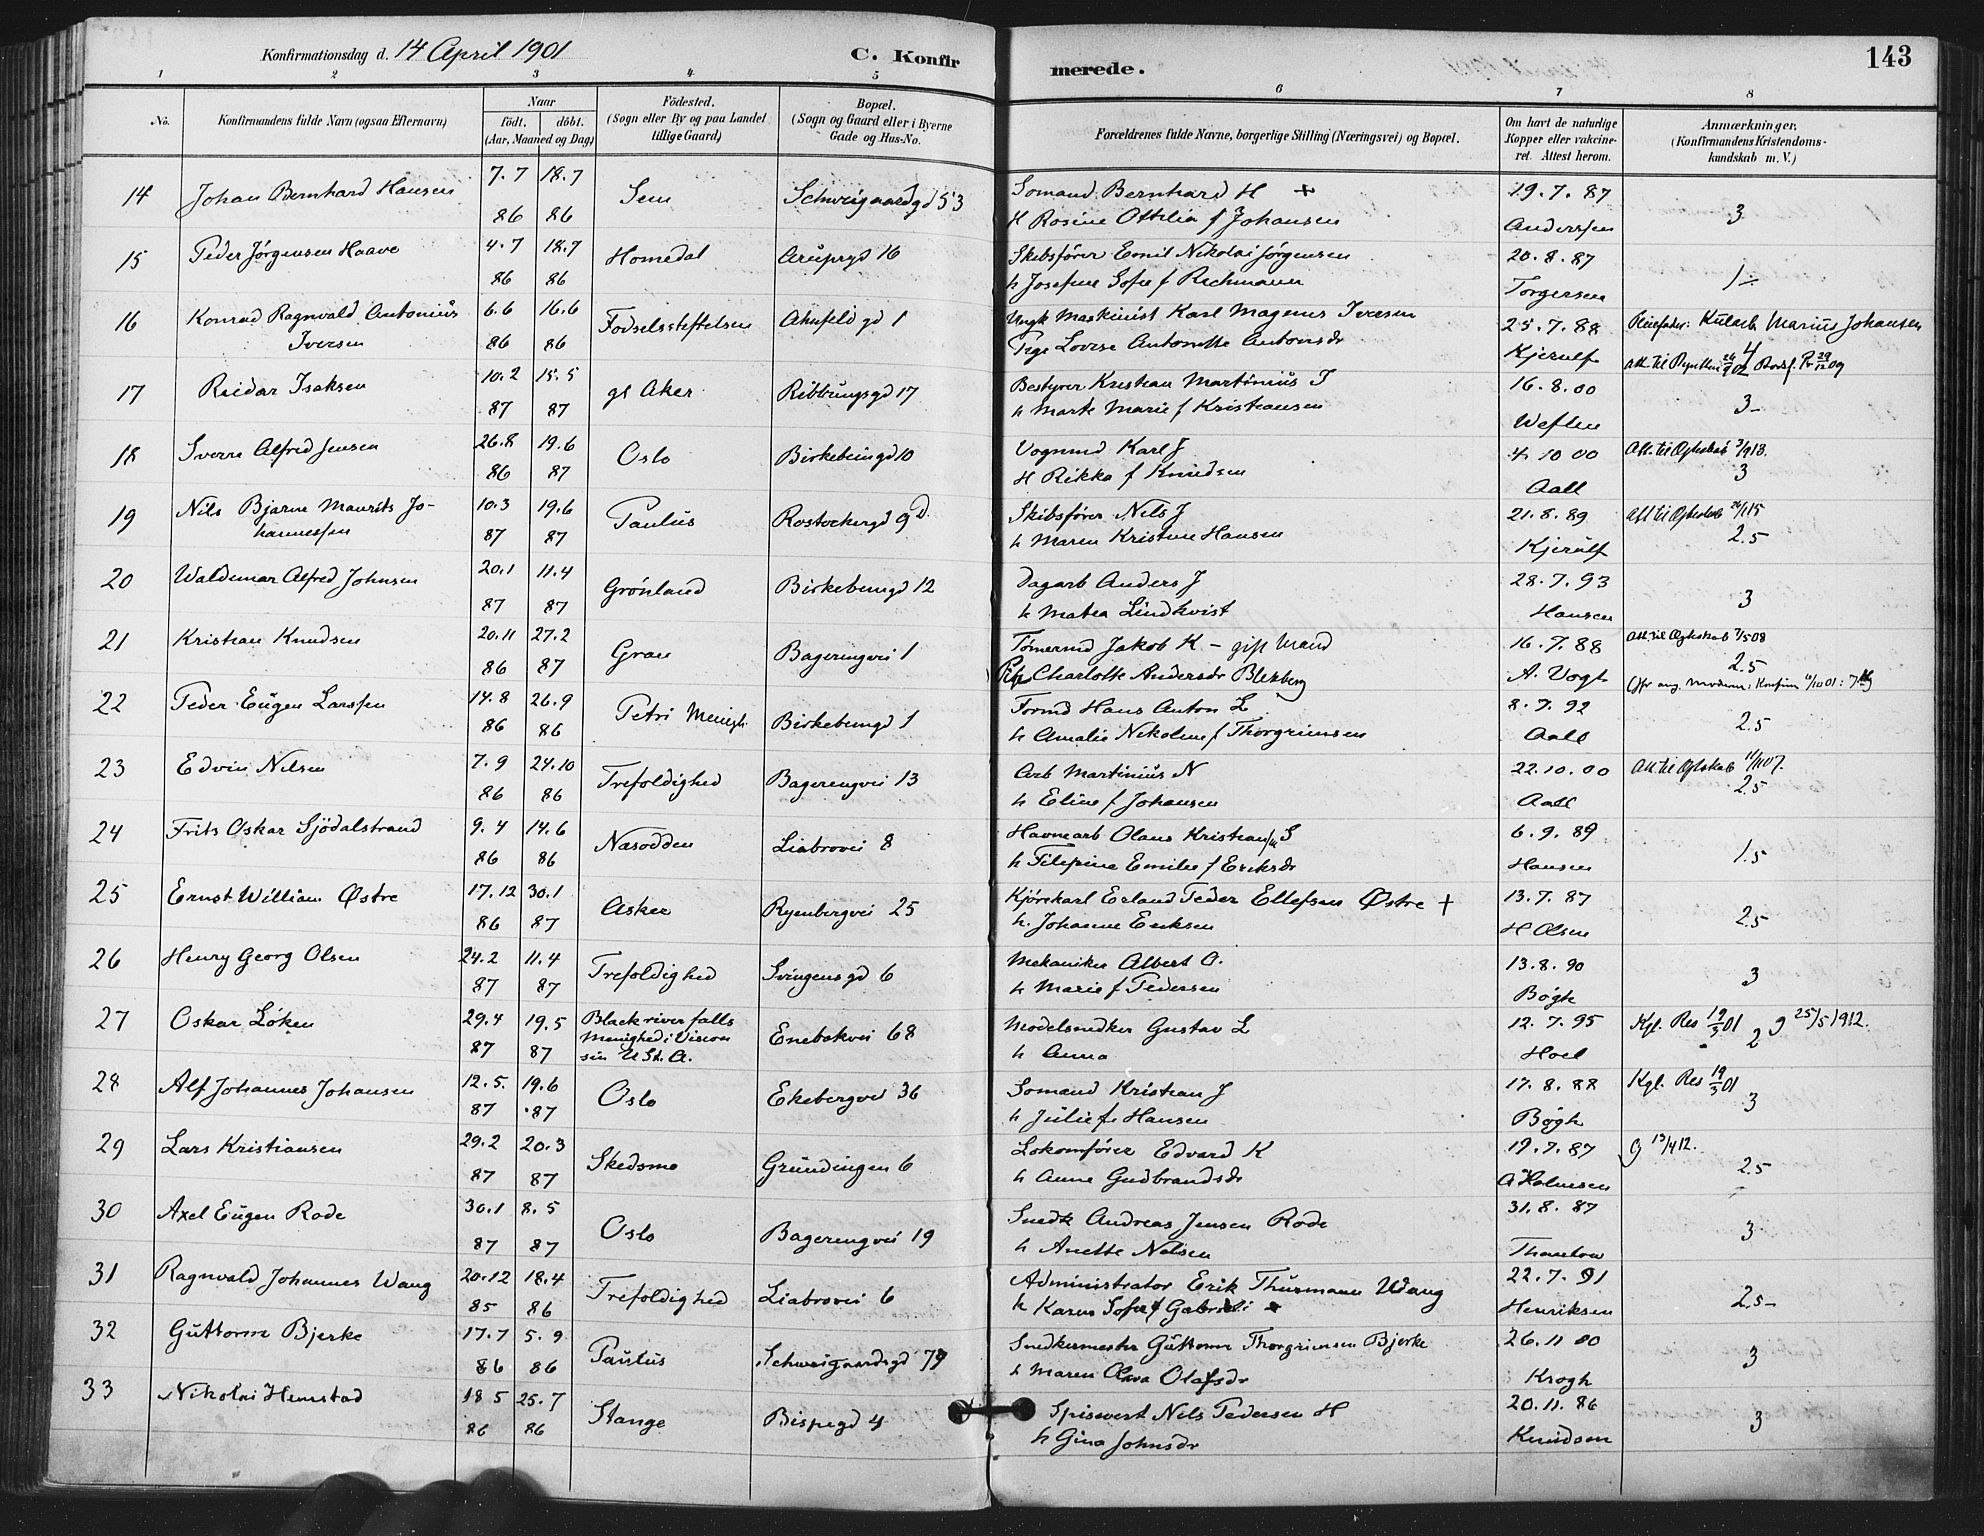 Konfirmationsdag d. 14 April 1901
C. Konfirmerede.
143
1 2 3 4 5 6 7 8
No.
Konfirmandens fulde Navn (ogsaa Efternavn)
Naar
födt. döbt.
(Aar, Maaned og Dag)
Födested.
(Sogn eller By og paa Landet
tillige Gaard)
Bopæl.
(Sogn og Gaard eller i Byerne
Gade og Hus-No.
Forældrenes fulde Navne, borgerlige Stilling (Næringsvei) og Bopæl.
Om havt de naturlige
Kopper eller vakcine-
ret. Attest herom.
Anmærkninger.
(Konfirmandens Kristendoms-
kundskab m. V.)
14 Johan Bernhard Hansen 7.7 86 18.7 86 Sem Schweigaardgd 53
Sømand Bernhard H +
H Rosine Ottilia f Johansen
19.7.87 Anderssen 3
15 Peder Jørgensen Haave 4.7 86 18.7 86 Homedal Arupsgd 16
Skibsfører Emil Nikolai Jørgensen
h Josefine Sofie f Rechmann
20.8.87 Torgersen 1÷
16 Konrad Ragnvald Antonius
Iversen 6.6 86 16.6 86 Fødselsstiftelsen Ahnfeld gd 1
Ungk Maskinist Karl Magnus Iversen
Pige Lovise Antonette Antonsdr
25.7.88 Kjerulf Pleiefader: Kularb Marius Johansen
4
17 Reidar Isaksen 10.2 87 15.5 87 gl Aker Ribbungsgd 17
Bestyrer Kristian Martinius I
h Marte Marie f Kristiansen
16.8.00 Weflen 3-
18 Sverre Alfred Jensen 26.8 86 19.6 87 Oslo Birkebeingd 10
Vognmd Karl J
H Rikka f Knudsen
4.10 00 Aall Att. til Ægteskab 3/1913.
3
19 Nils Bjarne Maurits Jo-
hannessen 10.3 87 19.6 87 Paulus Rostockergd 9 D
Skibsfører Nils J
h Maren Kristine Hansen
21.8.89 Kjerulf Att til Ægteskab
2.5
20 Waldemar Alfred Johnsen 20.1 87 11.4 87 Grønland Birkebeingd 12
Dagarb Anders J
h Matea Lindkvist
28.7.93 Hansen 3
21 Kristian Knudsen 20.11 86 27.2 87 Gran Bagerengvei 1
Tømermd Jakob K - gift Mand
Pige Charlotte Andersdr Blekberg
16.7.88 A. Vogt Att. til Ægteskab 7/5 08
2.5
22 Peder Eugen Larssen 14.8 86 26.9 86 Petri Menigh. Birkebeingd 1
Formd Hans Anton L
h Amalie Nikoline f Thorgrimsen
8.7.92 Aall 2.5
23 Edvin Nilsen 7.9 86 24.10 86 Trefoldighed Bagerengvei 13
Arb Martinius N
h Eline f Johansen
22.10.00 Aall Att til Ægteskab 11/1107.
2.5
24 Frits Oskar Sjödalstrand 9.4 86 14.6 86 Næsodden Liabrovei 8
Havnearb Olaus Kristian S
h Filipine Emilie f Eriksdr
6.9.89 Hansen 1.5
25 Ernst William Østre 17.12 86 30.1 87 Asker Ryenbergvei 25
Kjørekarl Erland Peder Ellefsen Østre +
h. Johanne Eriksen
13.7.87 H Olsen 2.5
26 Henry Georg Olsen 24.2 87 11.4 87 Trefoldighed Svingensgd 6
Mekaniker Albert O.
h Marie f Pedersen
13.8.90 Bøgh 3
27 Oskar Løken 29.4 87 19.5 87 Black river falls
Menighed i Viscon
sin U.St. A. Enebakvei 68
Modelsnedker Gustav L
h Anna
12.7.95 Hoel Kgl. Res 19/3 01 2 g 25/5 1912.
28 Alf Johannes Johansen 12.5. 87 19.6 87 Oslo Ekebergvei 36
Sømand Kristian J
h Julie f. Hansen
17.8.88 Bøgh Kgl. Res 19/3 01
3
29 Lars Kristiansen 29.2 87 20.3 87 Skedsmo Grundingen 6
Lokomfører Edvard K
h Anne Gudbrandsdr
19.7.87 A Holmsen g 13/4 12.
2.5
30 Axel Eugen Rode 30.1 87 8.5 87 Oslo Bagerengvei 19
Snedk Andreas Jensen Rode
h Anette Nilsen
31.8.87 Thaulow 3
31 Ragnvald Johannes Wang 20.12 85 18.4 86 Trefoldighed Liabrovei 6
Administrator Erik Thurmann Wang
h Karen Sofie f Gabrieli
22.7.91 Henriksen 2.5-
32 Guttorm Bjerke 17.7 86 5.9 86 Paulus Schweigaardsgd 79
Snedkermester Guttorm Thorgrimsen Bjerke
h Maren Olava Olafsdr
26.11 00 Krogh 3
33 Nikolai Hemstad 18 5 86 25.7 86 Stange Bispegd 4
Spisevert Nils Pedersen H
h Gina Johnsdr
20.11.86 Knudsen 3